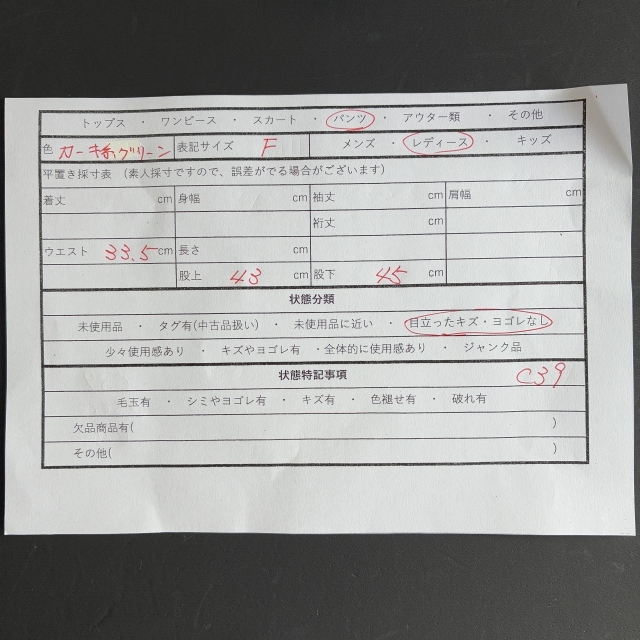 トップス ・ ワンピース ・ スカート ・ パンツ ・ アウター類 ・ その他
色 カーキ系グリーン 表記サイズ F メンズ ・ レディース ・ キッズ
平置き採寸表 (素人採寸ですので、誤差がでる場合がございます)
着丈 cm 身幅 cm 袖丈 cm 肩幅 cm
裄丈 cm
ウエスト 33.5cm 長さ cm
股上 43 cm 股下 45 cm
状態分類
未使用品 ・ タグ有(中古品扱い) ・ 未使用品に近い ・ 目立ったキズ・ヨゴレなし
少々使用感あり ・ キズやヨゴレ有 ・全体的に使用感あり ・ ジャンク品
状態特記事項 C39
毛玉有 ・ シミやヨゴレ有 ・ キズ有 ・ 色褪せ有 ・ 破れ有
欠品商品有( )
その他( )